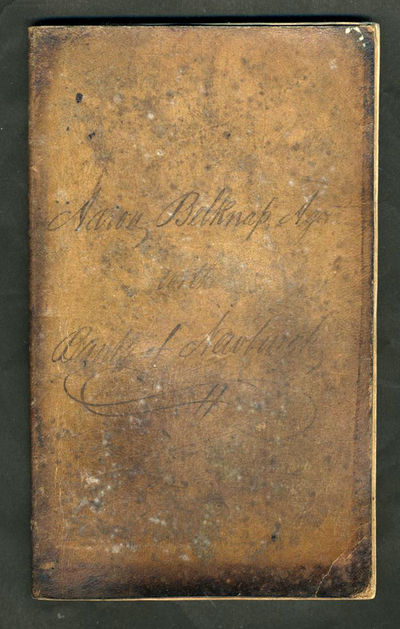 Aaron Belknap Agr.
with
Bank of Newburgh